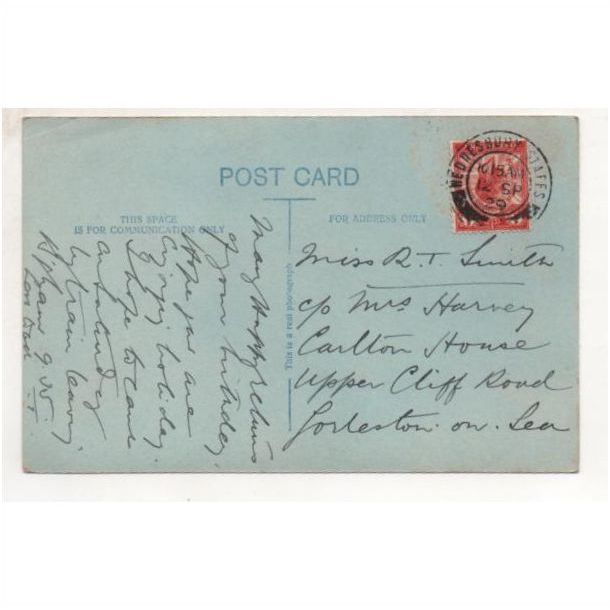 POST CARD
THIS SPACE
IS FOR COMMUNICATION ONLY
FOR ADDRESS ONLY
This is a real photograph
WEDNESBURY STAFFS
10 15 AM
12 SP
29
Many Happy returns
of your birthday.
Hope you are
enjoying holiday.
I hope to come
on Saturday
by train leaving
B'pham 9.35.
Love Dad
Miss R.T. Smith
c/o Mrs Harvey
Carlton House
Upper Cliff Road
Gorleston-on-Sea